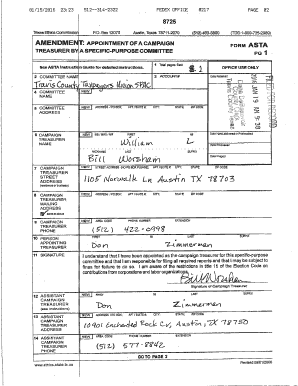 01/15/2016 23:23 512-314-2322 FEDEX OFFICE 0217 PAGE 02
8725
Texas Ethics Commission P.O. Box 12070 Austin, Texas 78711-2070 (512) 463-5800
AMENDMENT: APPOINTMENT OF A CAMPAIGN TREASURER BY A SPECIFIC-PURPOSE COMMITTEE
FORM ASTA
PG 1
See ASTA Instruction Guide for detailed instructions.
1 Total pages filed:
OFFICE USE ONLY
2 COMMITTEE NAME
Travis County Taxpayers Union SPAC
3 ACCOUNT #
4 COMMITTEE NAME
NEW
5 COMMITTEE ADDRESS
NEW
6 CAMPAIGN TREASURER NAME
NEW
FIRST
MI
William L
NICKNAME LAST SUFFIX
Bill Worsham
7 CAMPAIGN TREASURER STREET ADDRESS
NEW
1105 Norwalk Ln Austin TX 78703
8 CAMPAIGN TREASURER MAILING ADDRESS
NEW
9 CAMPAIGN TREASURER PHONE
NEW
AREA CODE PHONE NUMBER EXTENSION
(512) 422-0898
10 PERSON APPOINTING TREASURER
Don Zimmerman
11 SIGNATURE
I understand that I have been appointed as the campaign treasurer for this specific-purpose committee and that I am responsible for filing all required reports and that I may be subject to fines for failure to do so. I am aware of the restrictions in title 15 of the Election Code on contributions from corporations and labor organizations.
Bill Worsham
Signature of Campaign Treasurer
12 ASSISTANT CAMPAIGN TREASURER
NEW
Don Zimmerman
13 ASSISTANT CAMPAIGN TREASURER ADDRESS
NEW
10901 Enchanted Rock Cv, Austin, TX 78750
14 ASSISTANT CAMPAIGN TREASURER PHONE
NEW
AREA CODE PHONE NUMBER EXTENSION
(512) 577-8842
GO TO PAGE 2
www.ethics.state.tx.us